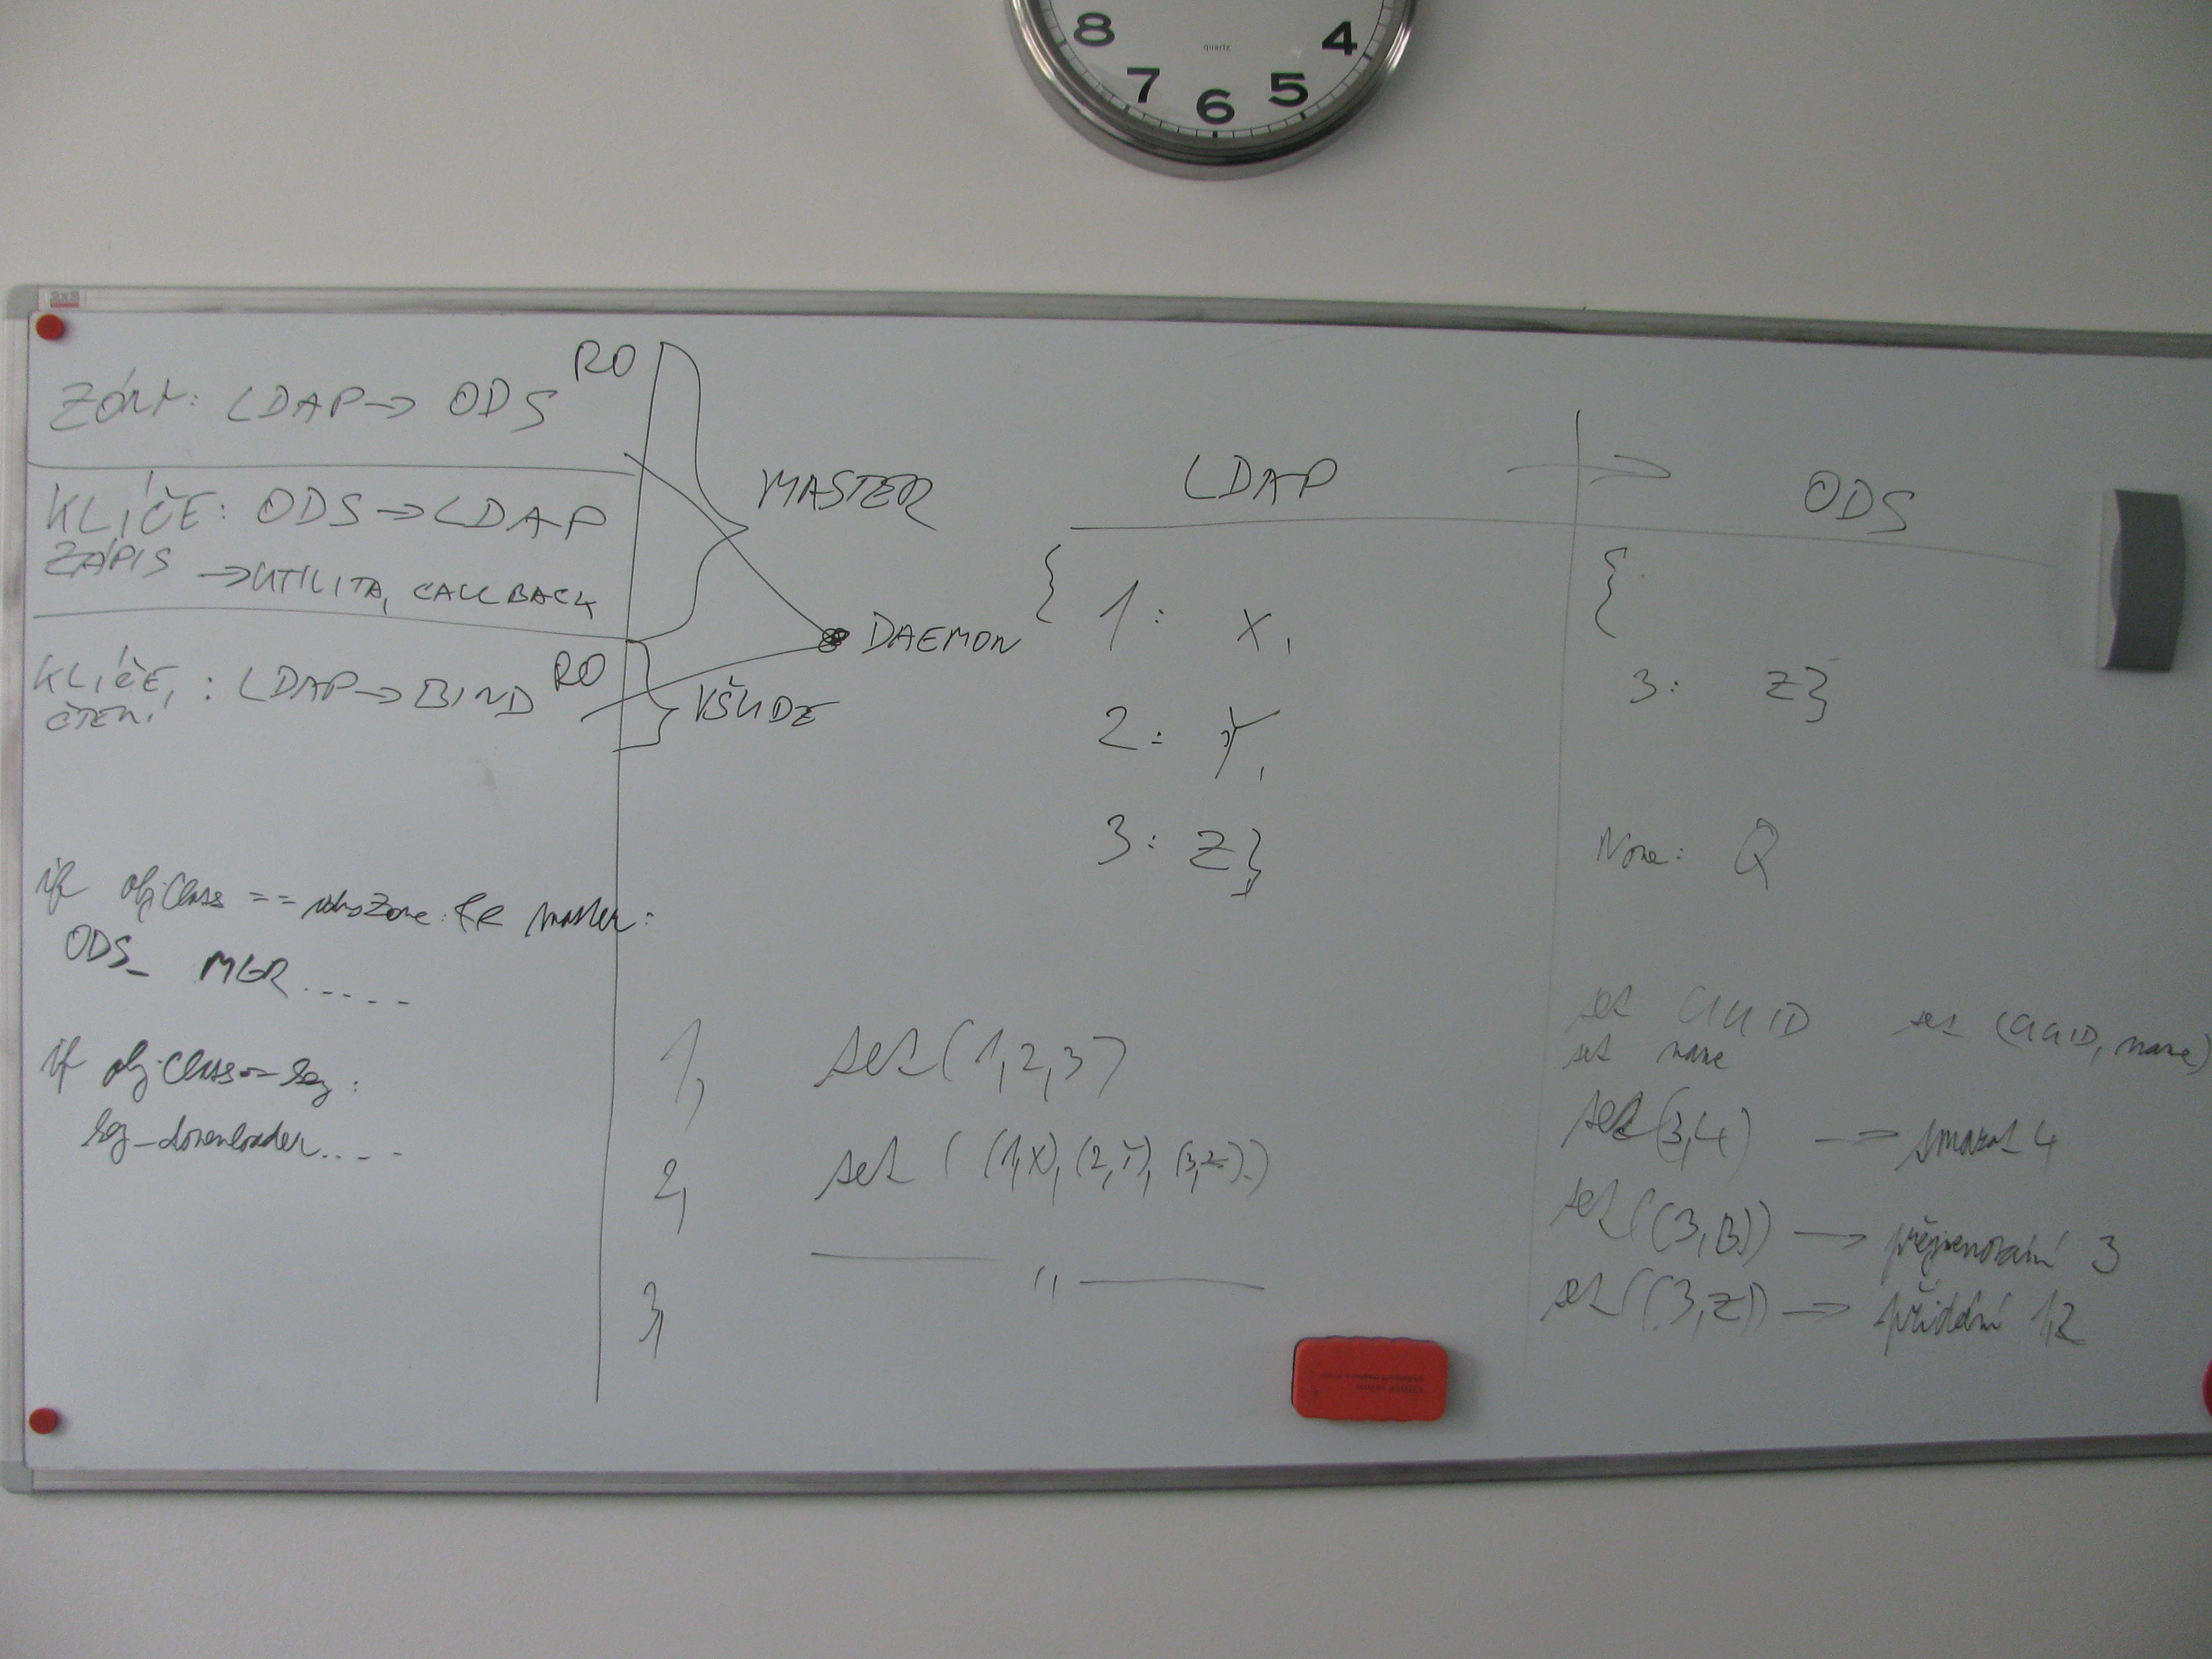 8 7 6 5 4
quartz
ZÓNY: LDAP → ODS RO
KLÍČE: ODS → LDAP
ZÁPIS → UTILITA, CALLBACK
KLÍČE, : LDAP → BIND RO
ČTENÍ
MASTER
DAEMON
VŠUDE
if objClass == idnsZone && master:
ODS_ MGR .....
if objClass == key:
key_downloader....
LDAP → ODS
{ 1: X,
2: Y,
3: Z}
{
3: Z}
None: Q
set UUID set (UUID, name)
set name
1, set(1,2,3) set(3,4) → smazat 4
2, set ( (1,X), (2,Y), (3,Z).) set((3,B)) → přejmenování 3
3, —— " —— set((3,Z)) → přidání 1,2